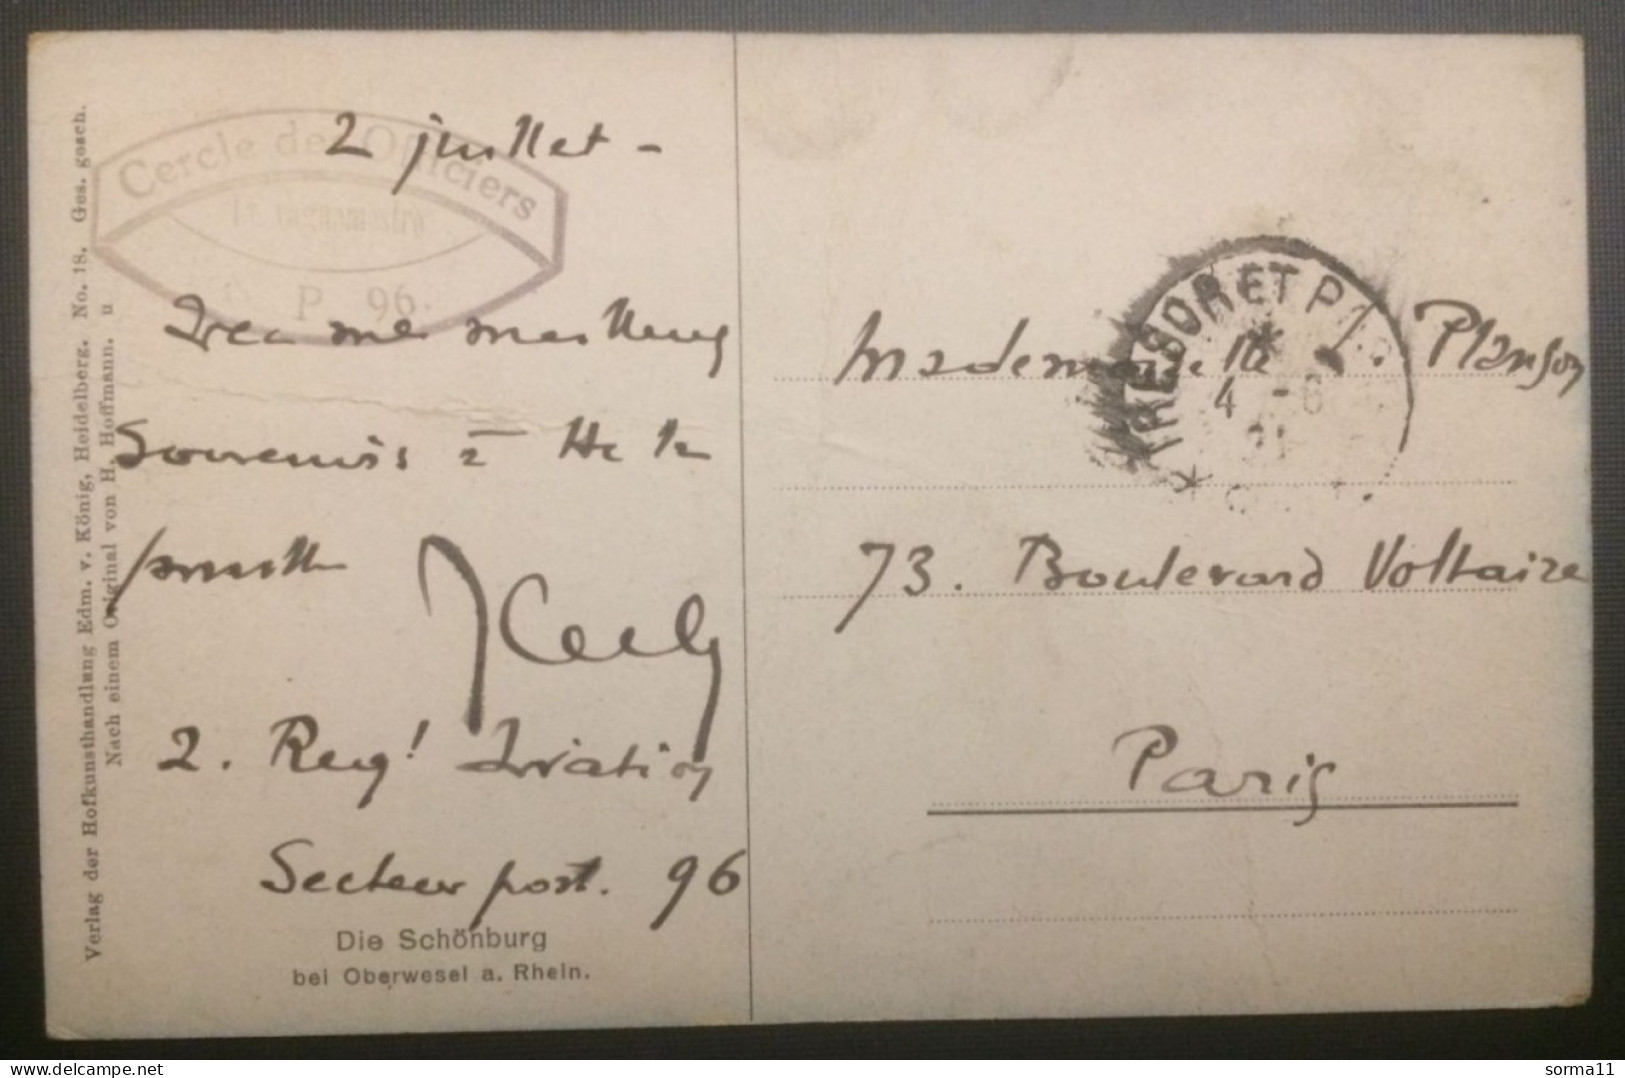 Cercle des Officiers
Le vaguemestre
P 96.
2 juillet -
Avec mes meilleurs
Souvenirs à
2. Regt Aviation
Secteur post. 96
Die Schönburg
bei Oberwesel a. Rhein.
Verlag der Hofkunsthandlung Edm. v. König, Heidelberg. No. 18. Ges. gesch.
Nach einem Original von H. Hoffmann. u
TRESOR ET P
4 - 6
21
Mademoiselle Planson
73. Boulevard Voltaire
Paris
sorma11